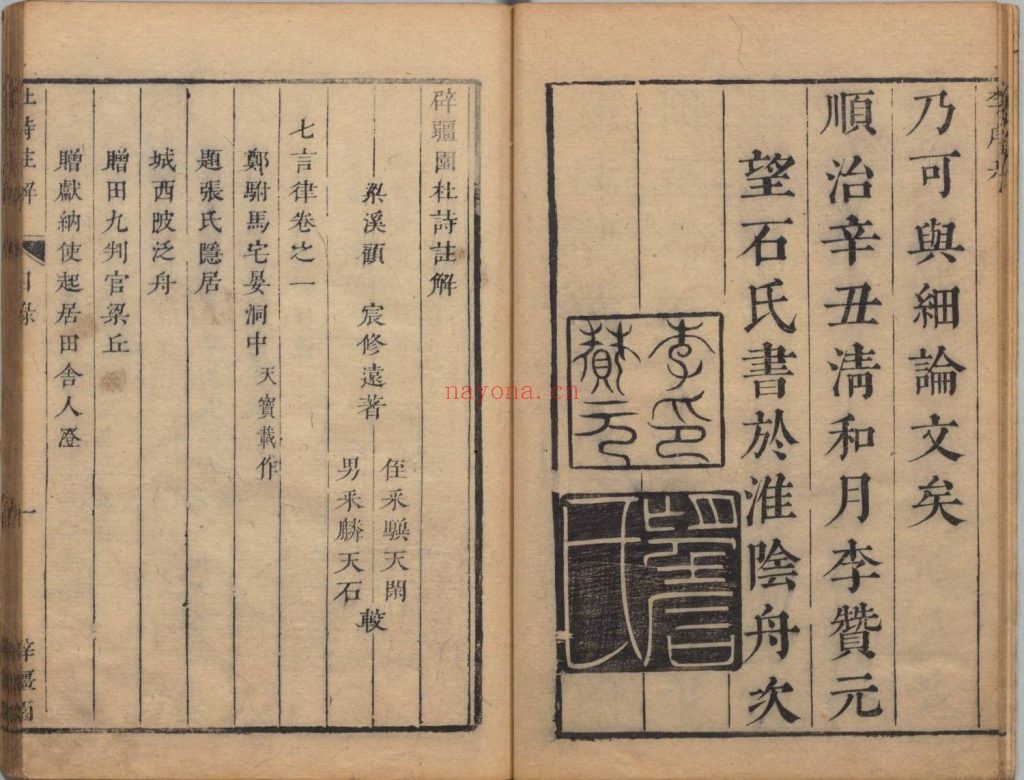 乃可與細論文矣
順治辛丑清和月李贊元
望石氏書於淮陰舟次
李印
贊元
望石
氏
辟疆園杜詩註解
梁溪顧 宸修遠著
侄采騏天閑
男采麟天石
較
七言律卷之一
鄭駙馬宅宴洞中 天寶載作
題張氏隱居
城西陂泛舟
贈田九判官梁丘
贈獻納使起居田舍人澄
杜詩註解
目錄
一
辟疆園
nayona.cn